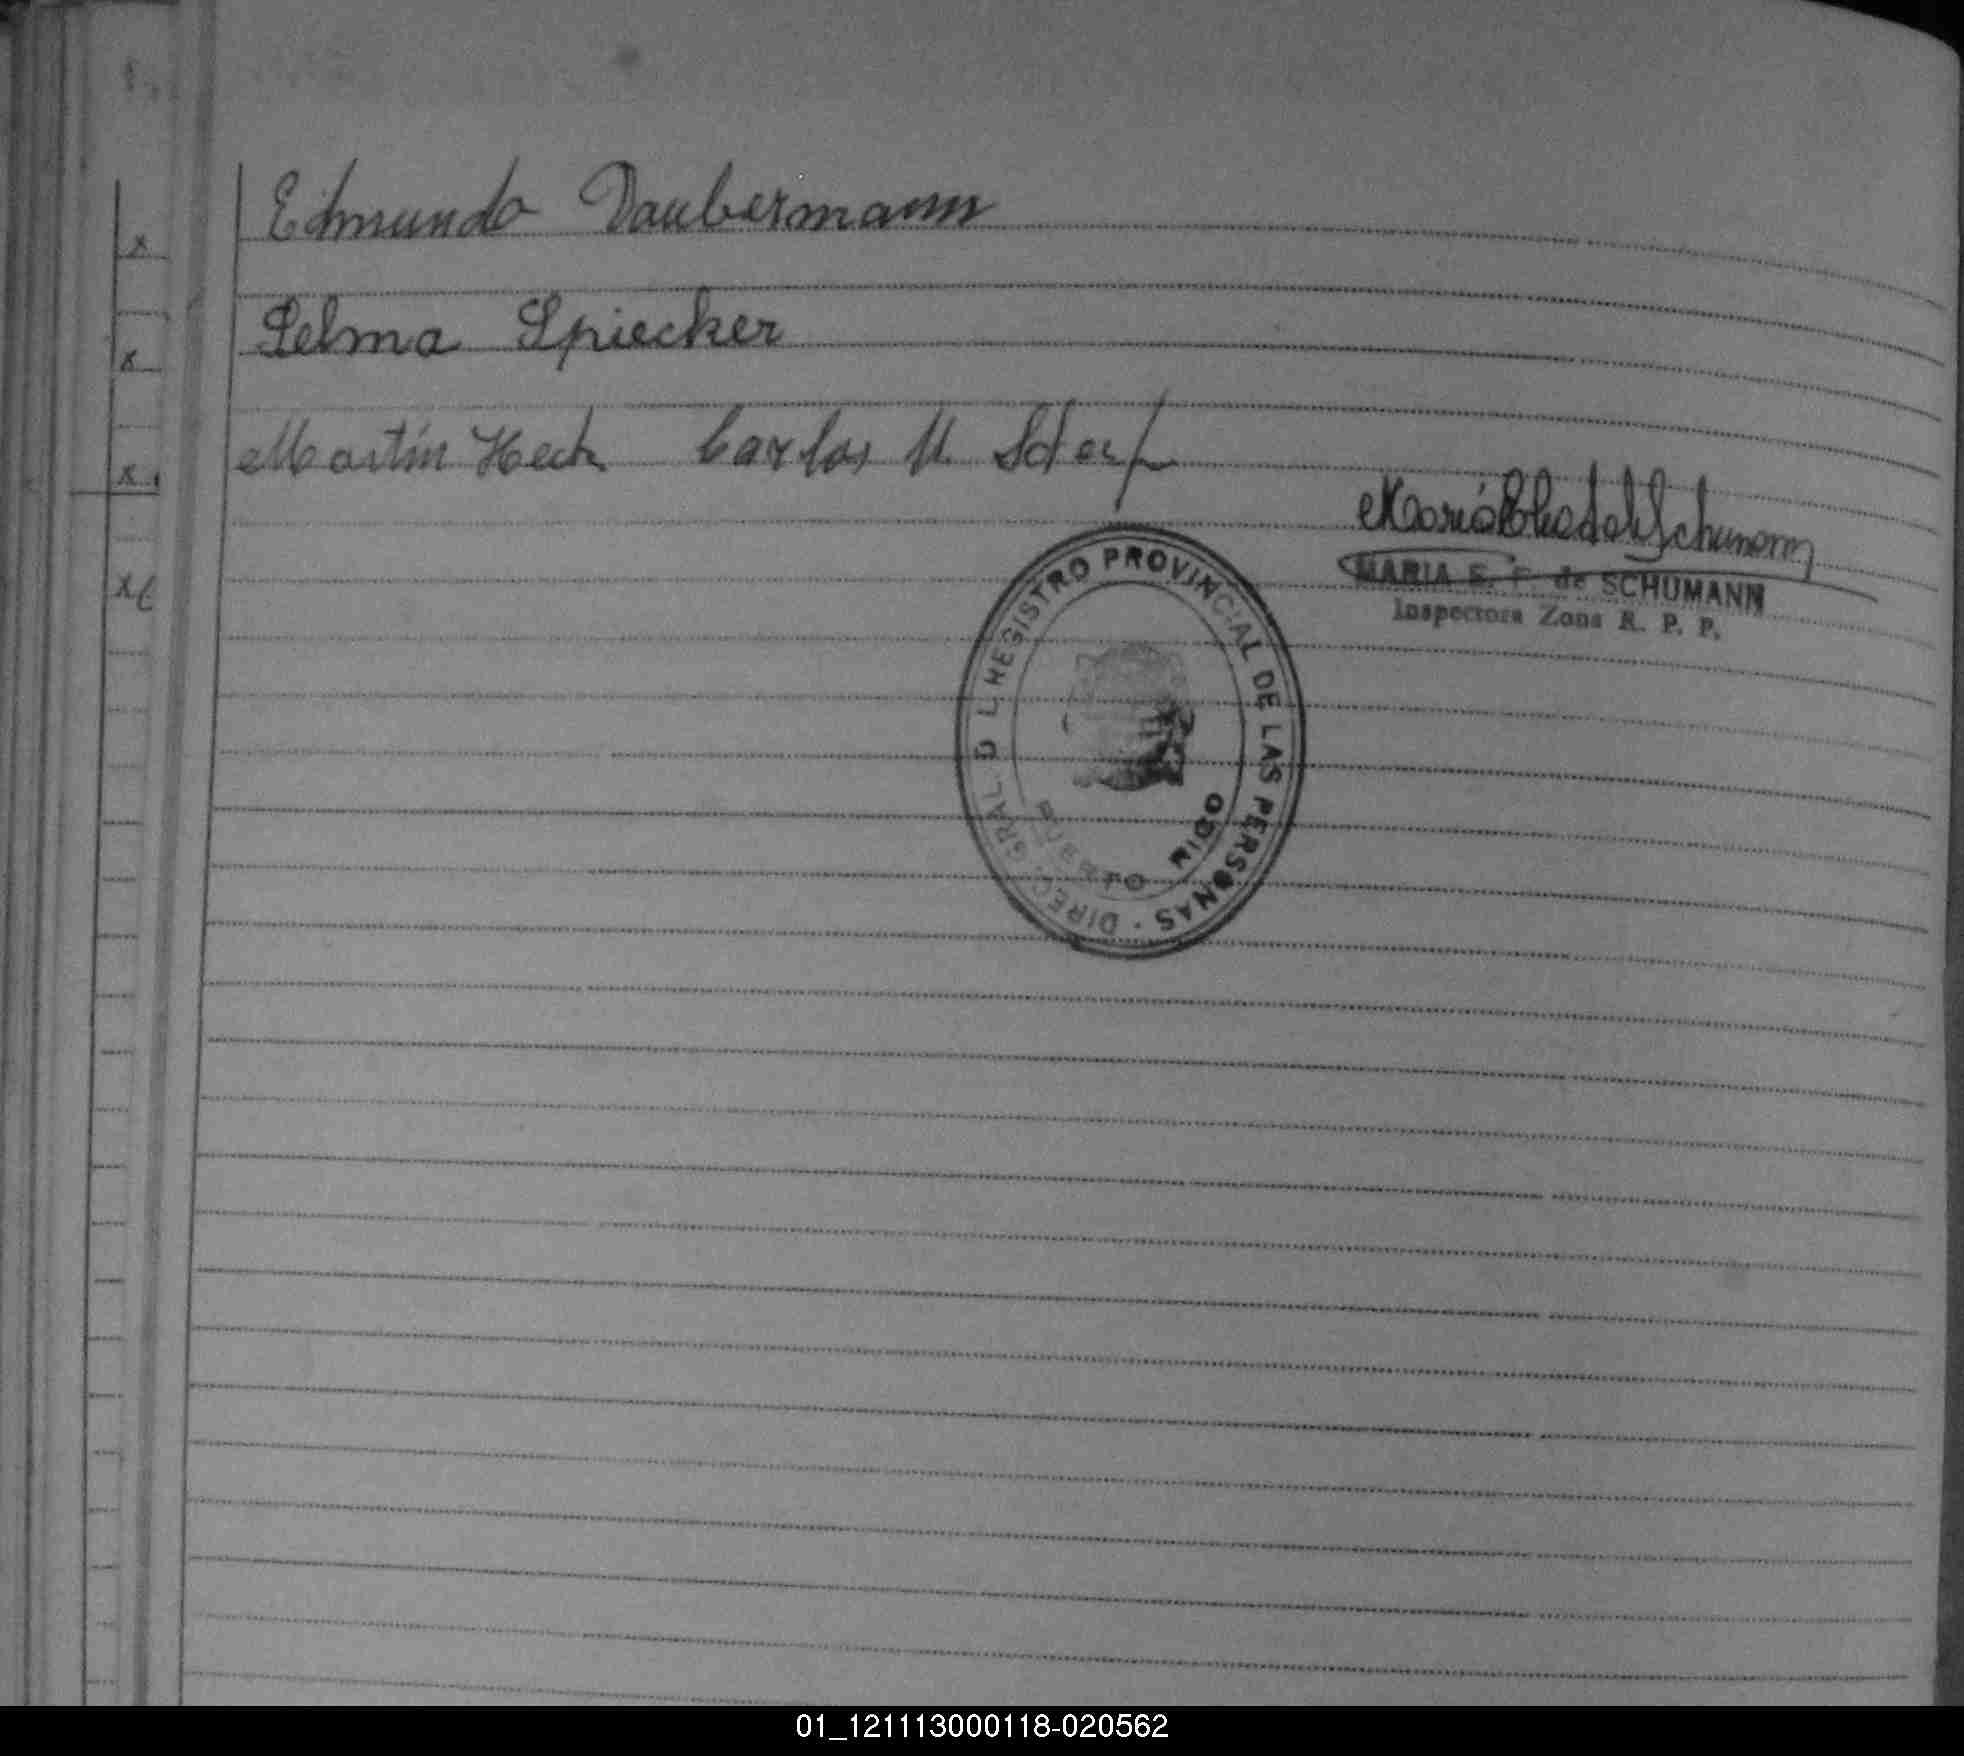 Edmundo Daubermann
Selma Spiecker
Martín Heck Carlos M.
MARIA E. F. de SCHUMANN
Inspectora Zona R. P. P.
DIREC. GRAL. DEL REGISTRO PROVINCIAL DE LAS PERSONAS
PUERTO MINO
01_121113000118-020562